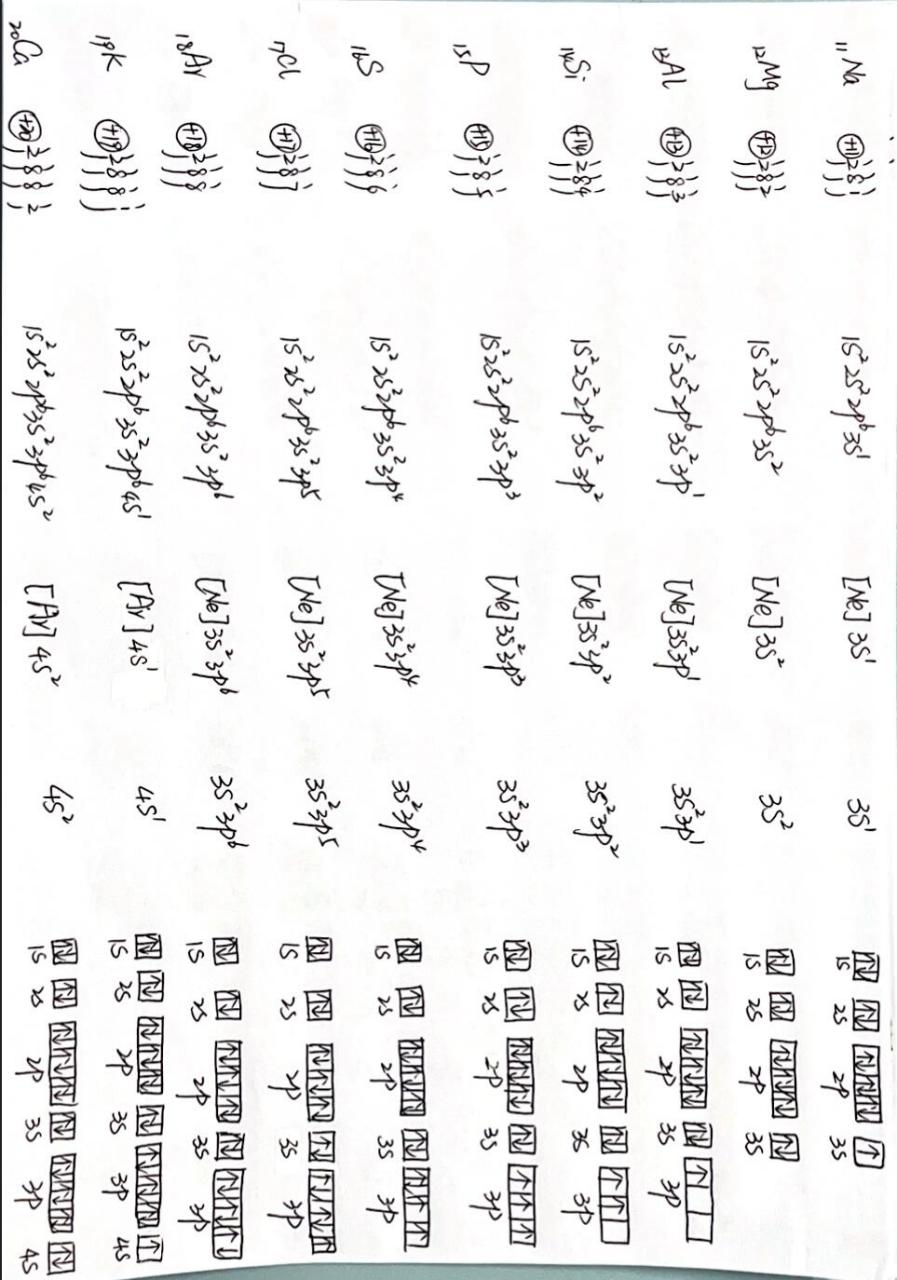 ₁₁Na +11 2 8 1 1s²2s²2p⁶3s¹ [Ne]3s¹ 3s¹
1s 2s 2p 3s
₁₂Mg +12 2 8 2 1s²2s²2p⁶3s² [Ne]3s² 3s²
1s 2s 2p 3s
₁₃Al +13 2 8 3 1s²2s²2p⁶3s²3p¹ [Ne]3s²3p¹ 3s²3p¹
1s 2s 2p 3s 3p
₁₄Si +14 2 8 4 1s²2s²2p⁶3s²3p² [Ne]3s²3p² 3s²3p²
1s 2s 2p 3s 3p
₁₅P +15 2 8 5 1s²2s²2p⁶3s²3p³ [Ne]3s²3p³ 3s²3p³
1s 2s 2p 3s 3p
₁₆S +16 2 8 6 1s²2s²2p⁶3s²3p⁴ [Ne]3s²3p⁴ 3s²3p⁴
1s 2s 2p 3s 3p
₁₇Cl +17 2 8 7 1s²2s²2p⁶3s²3p⁵ [Ne]3s²3p⁵ 3s²3p⁵
1s 2s 2p 3s 3p
₁₈Ar +18 2 8 8 1s²2s²2p⁶3s²3p⁶ [Ne]3s²3p⁶ 3s²3p⁶
1s 2s 2p 3s 3p
₁₉K +19 2 8 8 1 1s²2s²2p⁶3s²3p⁶4s¹ [Ar]4s¹ 4s¹
1s 2s 2p 3s 3p 4s
₂₀Ca +20 2 8 8 2 1s²2s²2p⁶3s²3p⁶4s² [Ar]4s² 4s²
1s 2s 2p 3s 3p 4s